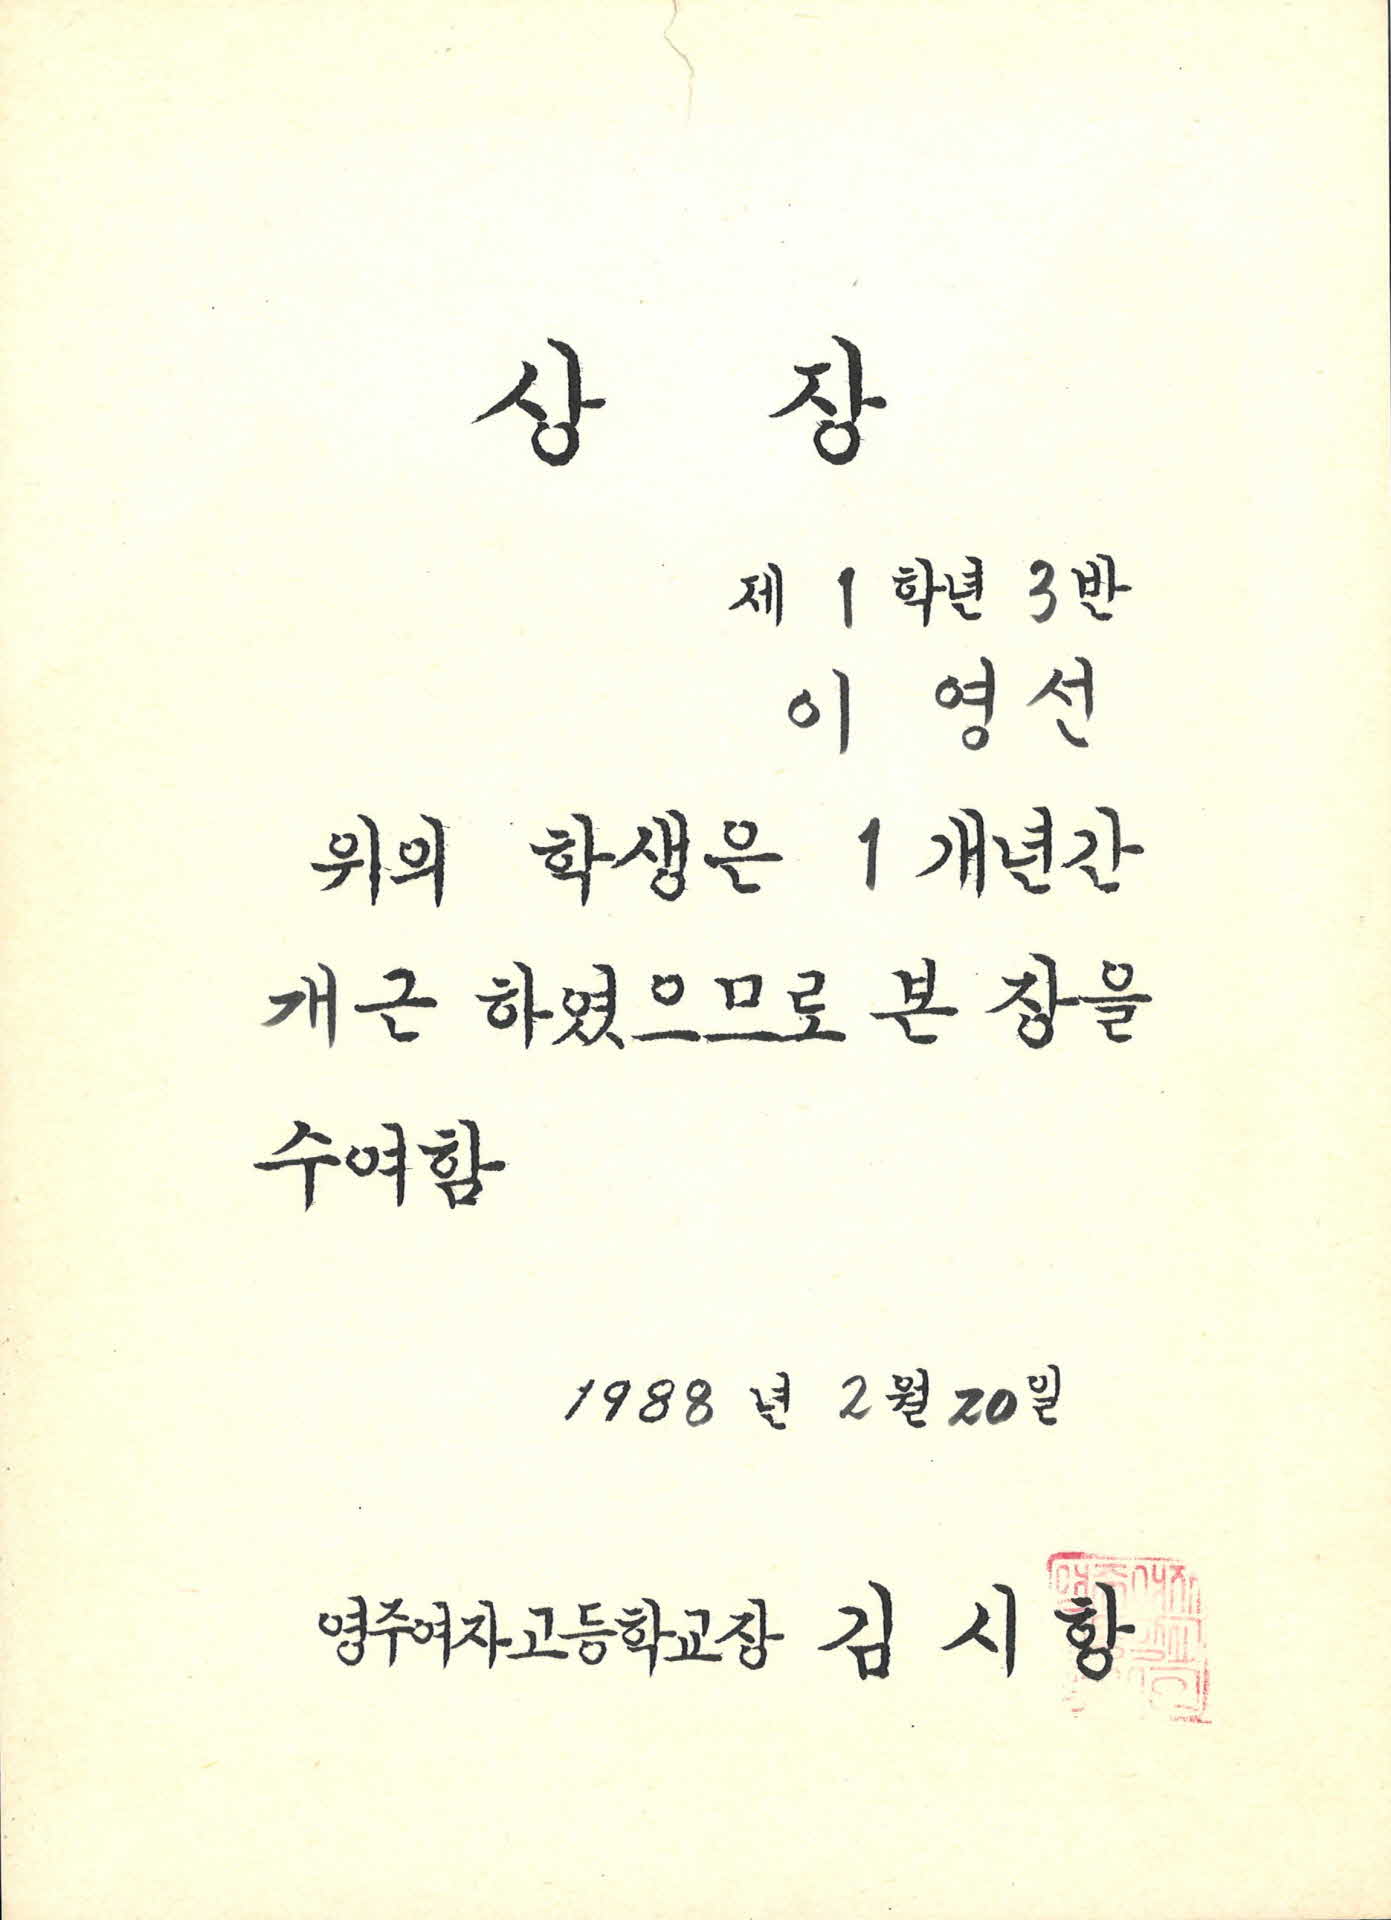 상 장
제 1 학년 3 반
이 영 선
위의 학생은 1 개년간
개근 하였으므로 본 장을
수여함
1988 년 2 월 20 일
영주여자고등학교장 김 시 황